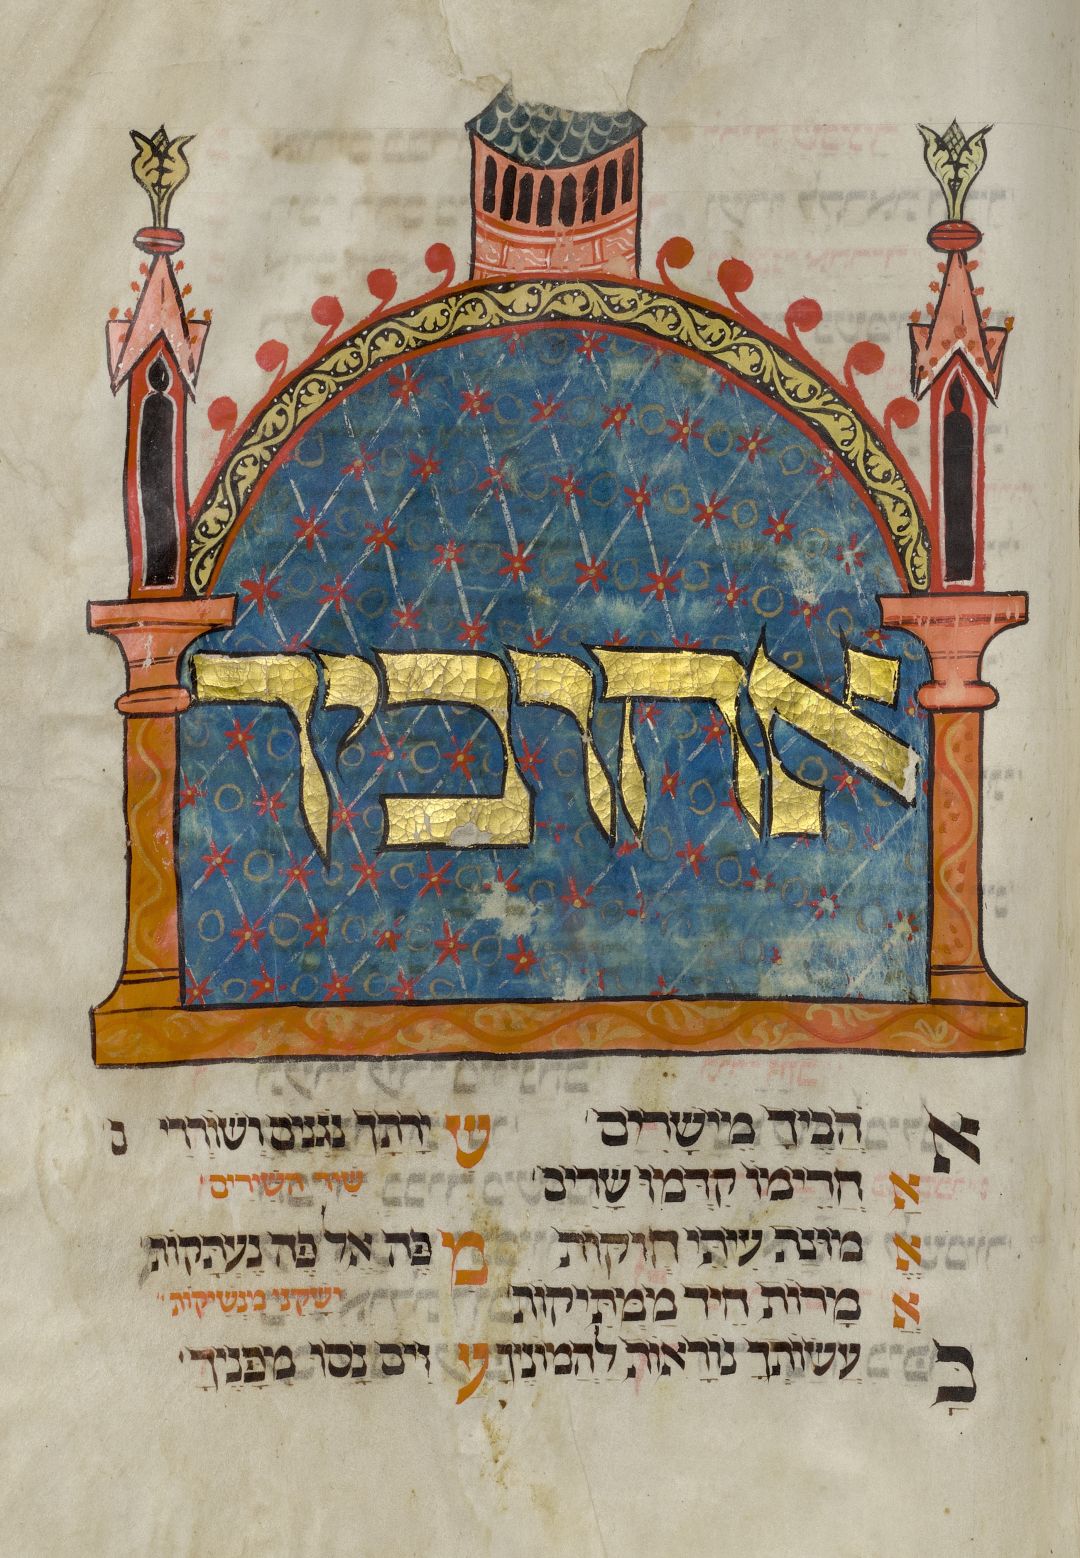 אהוביך
א הבוך מישרים ש ירתך נגנים ושוררי כ
א חרימו קדמו שרים שיר השירים
א מונת עיתי חוקות מ פה אל פה נעתקות
א מרות חיך ממתיקות ישקני מנשיקות
ב עשותך נוראות להמונך ע זים נסו מפניך